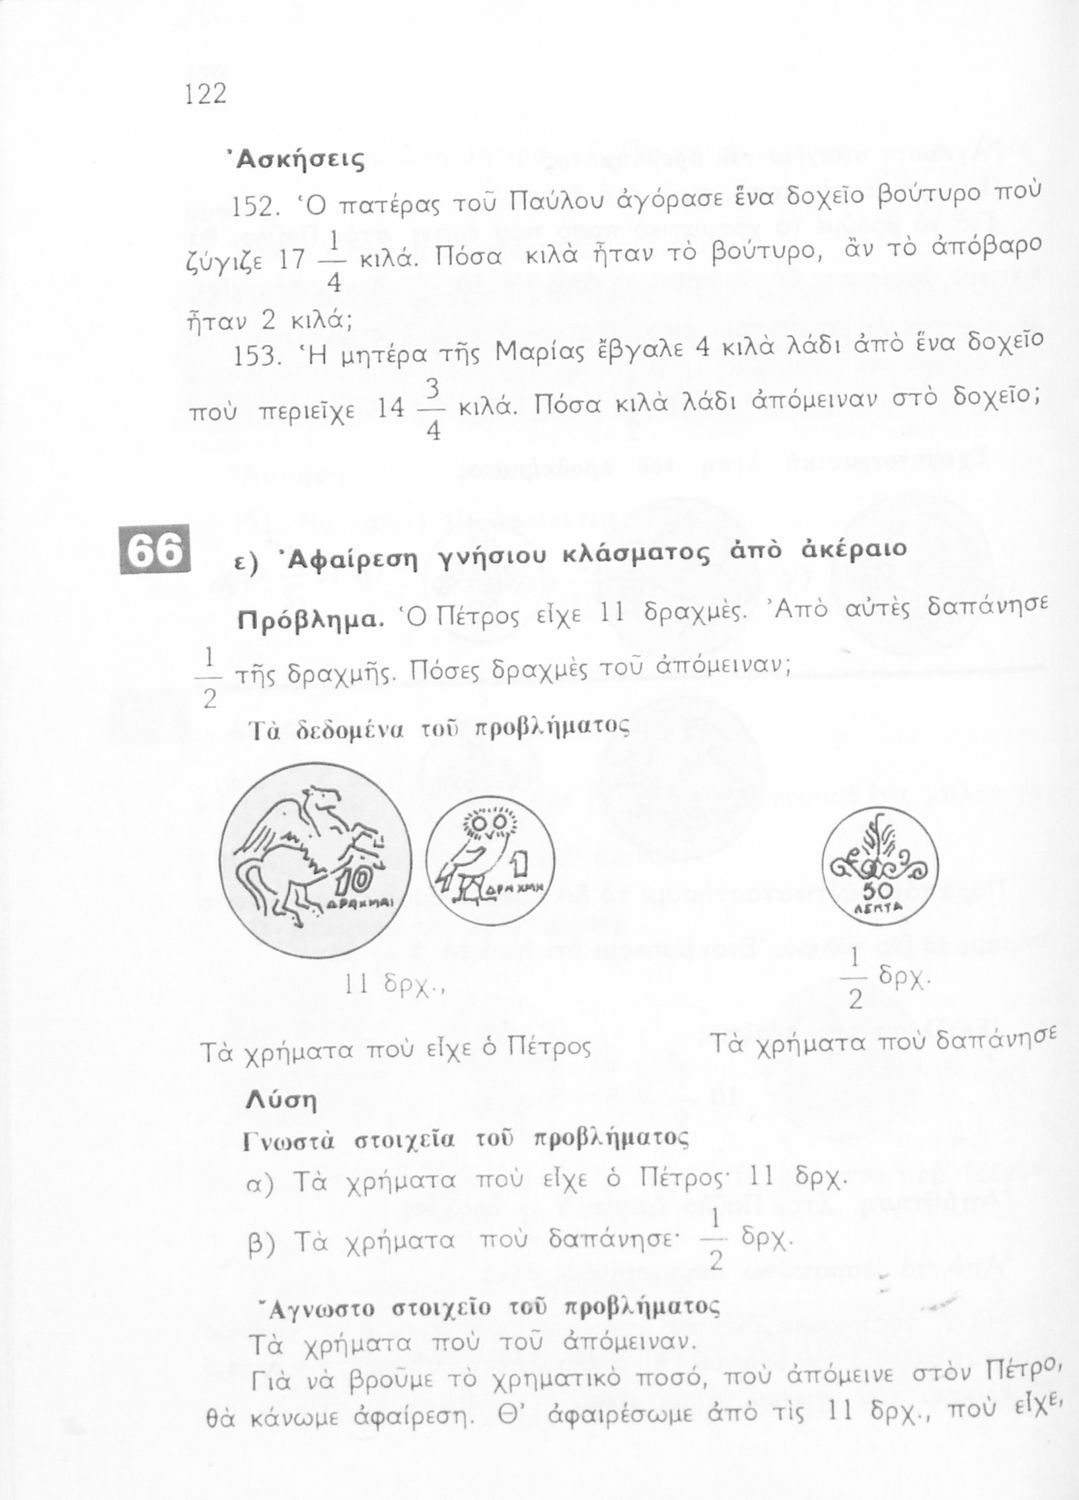 122
Ἀσκήσεις
152. Ὁ πατέρας τοῦ Παύλου ἀγόρασε ἕνα δοχεῖο βούτυρο ποὺ
ζύγιζε 17 1/4 κιλά. Πόσα κιλὰ ἦταν τὸ βούτυρο, ἂν τὸ ἀπόβαρο
ἦταν 2 κιλά;
153. Ἡ μητέρα τῆς Μαρίας ἔβγαλε 4 κιλὰ λάδι ἀπὸ ἕνα δοχεῖο
ποὺ περιεῖχε 14 3/4 κιλά. Πόσα κιλὰ λάδι ἀπόμειναν στὸ δοχεῖο;
66 ε) Ἀφαίρεση γνήσιου κλάσματος ἀπὸ ἀκέραιο
Πρόβλημα. Ὁ Πέτρος εἶχε 11 δραχμὲς. Ἀπὸ αὐτὲς δαπάνησε
1/2 τῆς δραχμῆς. Πόσες δραχμὲς τοῦ ἀπόμειναν;
Τὰ δεδομένα τοῦ προβλήματος
10
ΔΡΑΧΜΑΙ
1
ΔΡΑΧΜΗ
50
ΛΕΠΤΑ
11 δρχ., 1/2 δρχ.
Τὰ χρήματα ποὺ εἶχε ὁ Πέτρος Τὰ χρήματα ποὺ δαπάνησε
Λύση
Γνωστὰ στοιχεῖα τοῦ προβλήματος
α) Τὰ χρήματα ποὺ εἶχε ὁ Πέτρος· 11 δρχ.
β) Τὰ χρήματα ποὺ δαπάνησε· 1/2 δρχ.
Ἄγνωστο στοιχεῖο τοῦ προβλήματος
Τὰ χρήματα ποὺ τοῦ ἀπόμειναν.
Γιὰ νὰ βροῦμε τὸ χρηματικὸ ποσό, ποὺ ἀπόμεινε στὸν Πέτρο,
θὰ κάνωμε ἀφαίρεση. Θ' ἀφαιρέσωμε ἀπὸ τὶς 11 δρχ., ποὺ εἶχε,